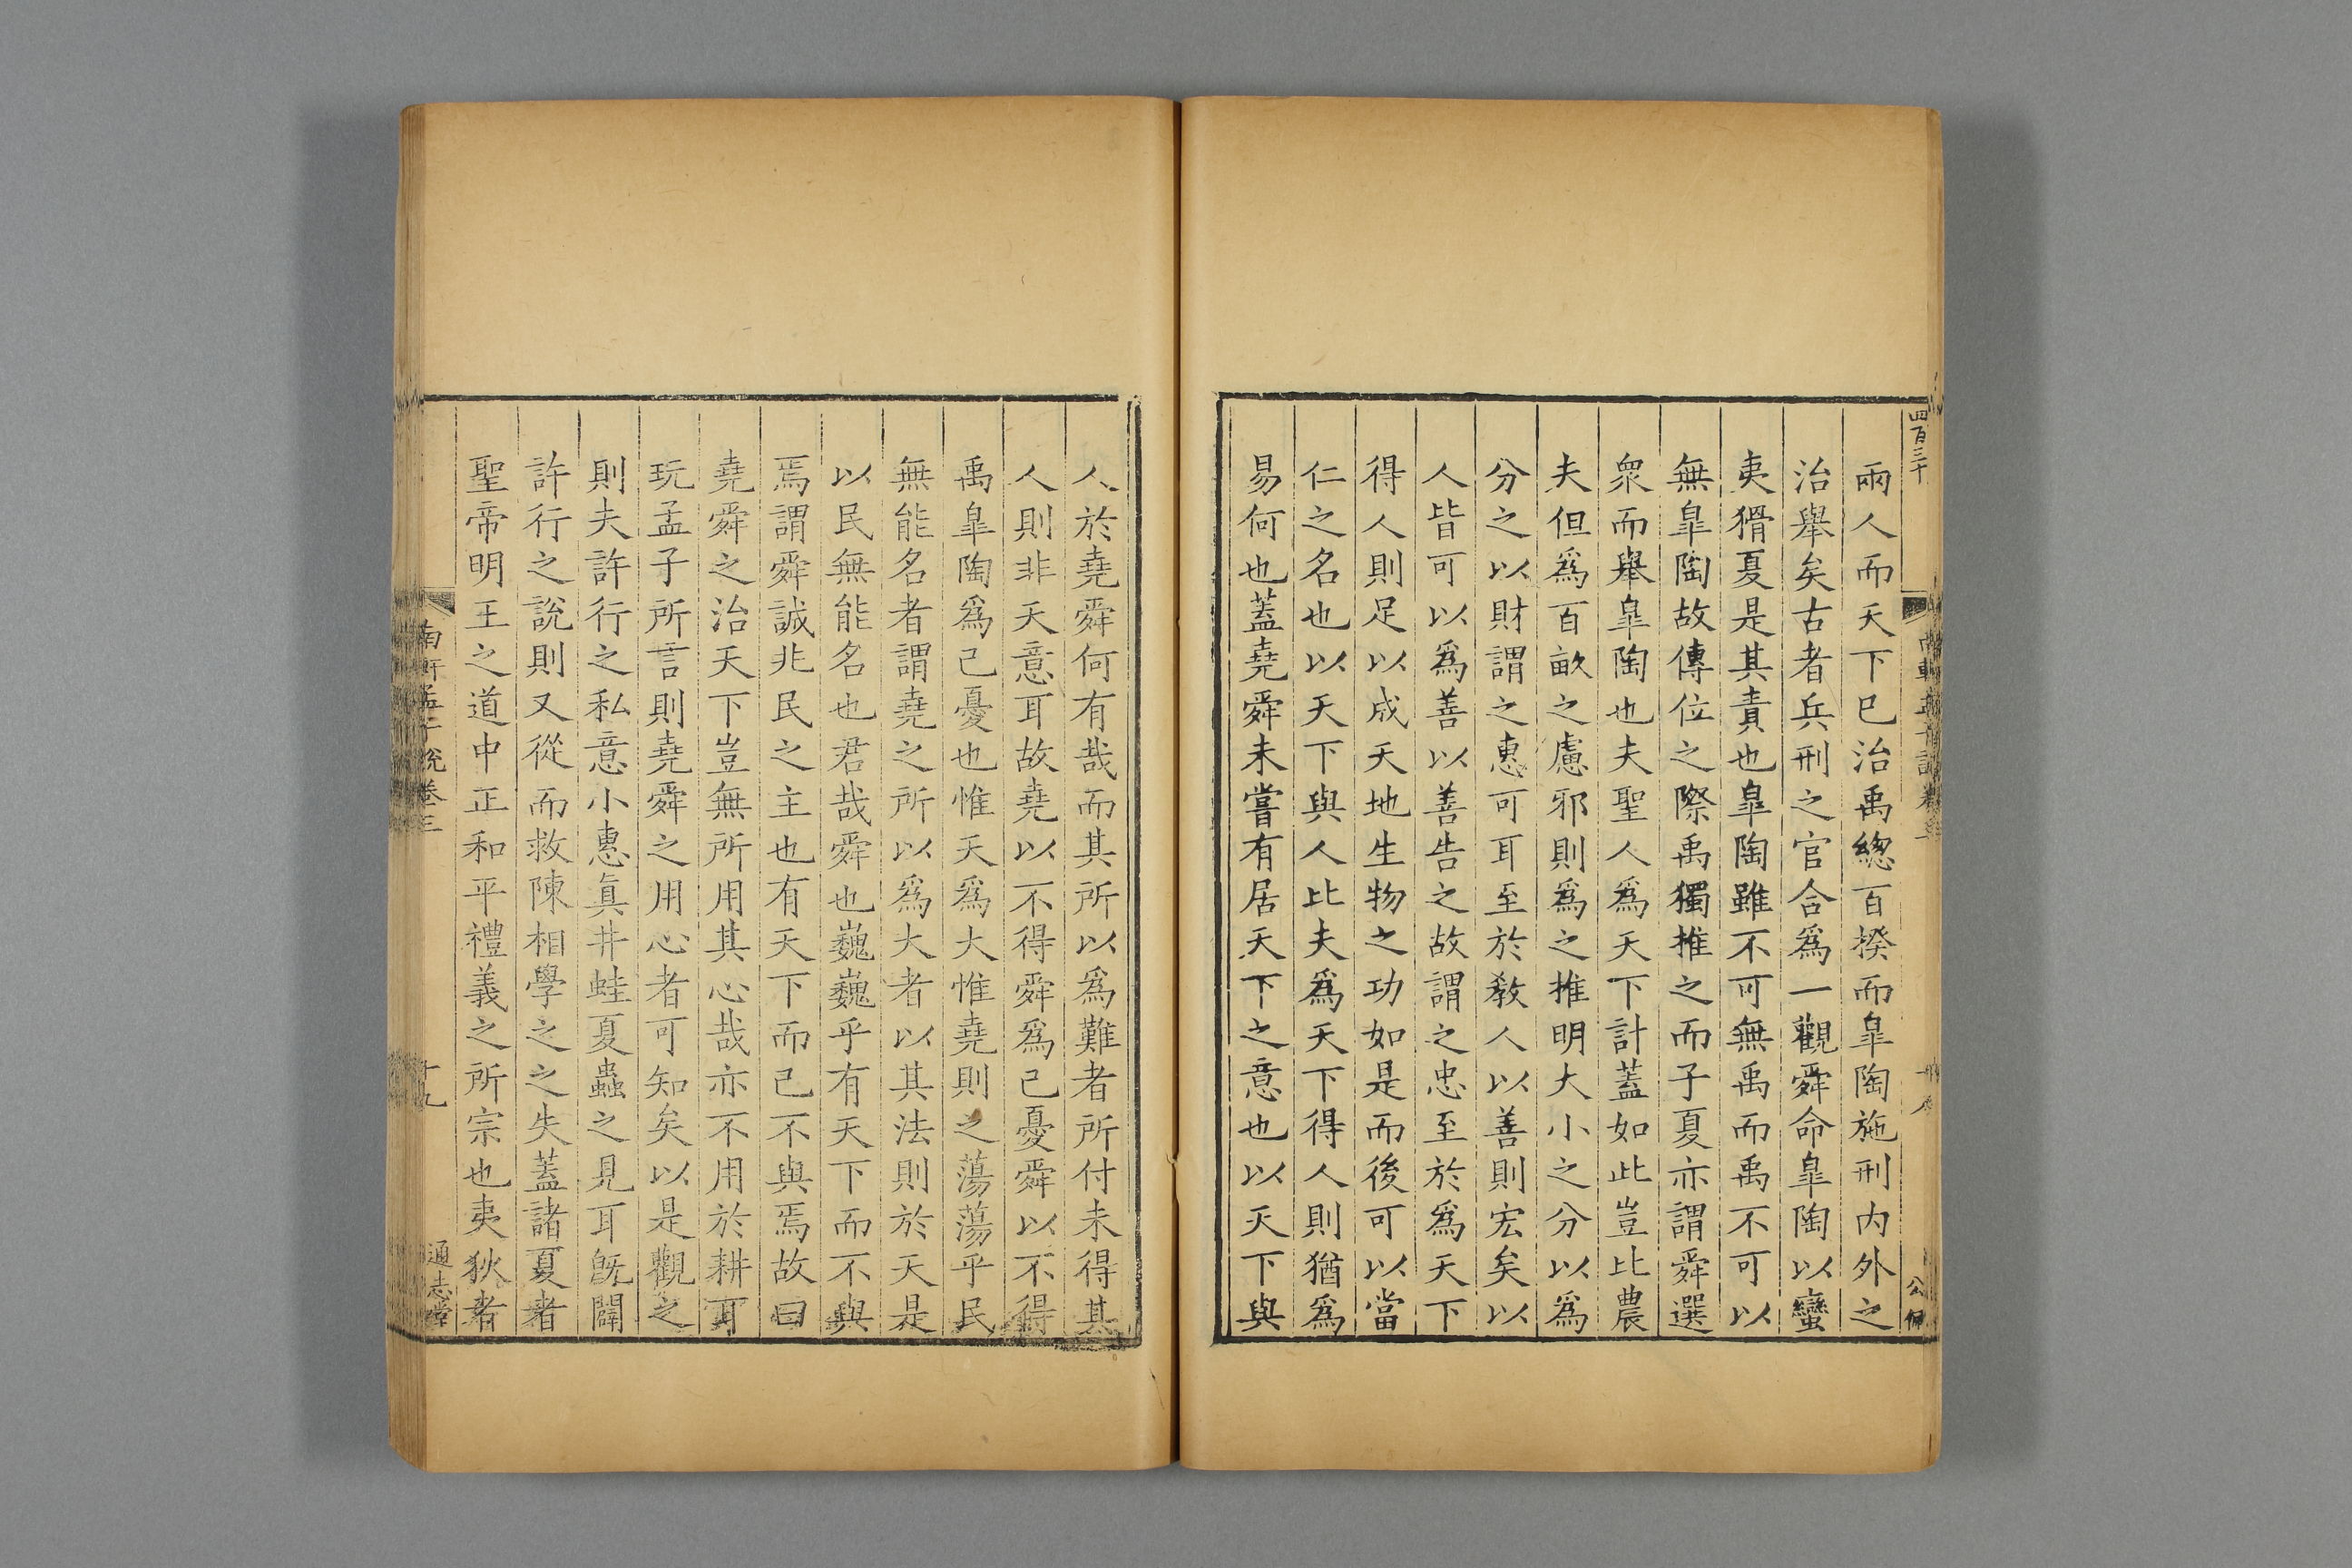 四百三十
南軒孟子說卷三
公佩
兩人而天下已治禹總百揆而皐陶施刑内外之
治舉矣古者兵刑之官合爲一觀舜命皐陶以蠻
夷猾夏是其責也皐陶雖不可無禹而禹不可以
無皐陶故傳位之際禹獨推之而子夏亦謂舜選
衆而舉皐陶也夫聖人爲天下計蓋如此豈比農
夫但爲百畝之慮邪則爲之推明大小之分以爲
分之以財謂之惠可耳至於教人以善則宏矣以
人皆可以爲善以善告之故謂之忠至於爲天下
得人則足以成天地生物之功如是而後可以當
仁之名也以天下與人比夫爲天下得人則猶爲
易何也蓋堯舜未嘗有居天下之意也以天下與
人於堯舜何有哉而其所以爲難者所付未得其
人則非天意耳故堯以不得舜爲己憂舜以不得
禹皐陶爲己憂也惟天爲大惟堯則之蕩蕩乎民
無能名者謂堯之所以爲大者以其法則於天是
以民無能名也君哉舜也巍巍乎有天下而不與
焉謂舜誠非民之主也有天下而已不與焉故曰
堯舜之治天下豈無所用其心哉亦不用於耕耳
玩孟子所言則堯舜之用心者可知矣以是觀之
則夫許行之私意小惠眞井蛙夏蟲之見耳旣闢
許行之說則又從而救陳相學之之失蓋諸夏者
聖帝明王之道中正和平禮義之所宗也夷狄者
南軒孟子說卷三
十九
通志堂